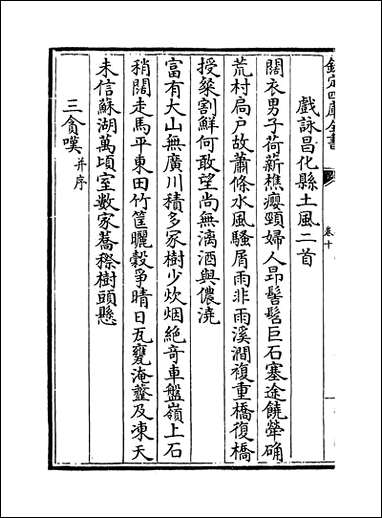 欽定四庫全書
卷十
戲詠昌化縣土風二首
闊衣男子荷薪樵癭頸婦人昂髻髫巨石塞途饒犖确
荒村扃户故蕭條水風騷屑雨非雨溪澗複重橋復橋
授粲割鮮何敢望尚無漓酒與儂澆
富有大山無廣川積多冢樹少炊烟絶奇車盤嶺上石
稍闊走馬平東田竹筐曬穀爭晴日瓦甕淹虀及凍天
未信蘇湖萬頃室數家蕎穄樹頭懸
三貪嘆并序